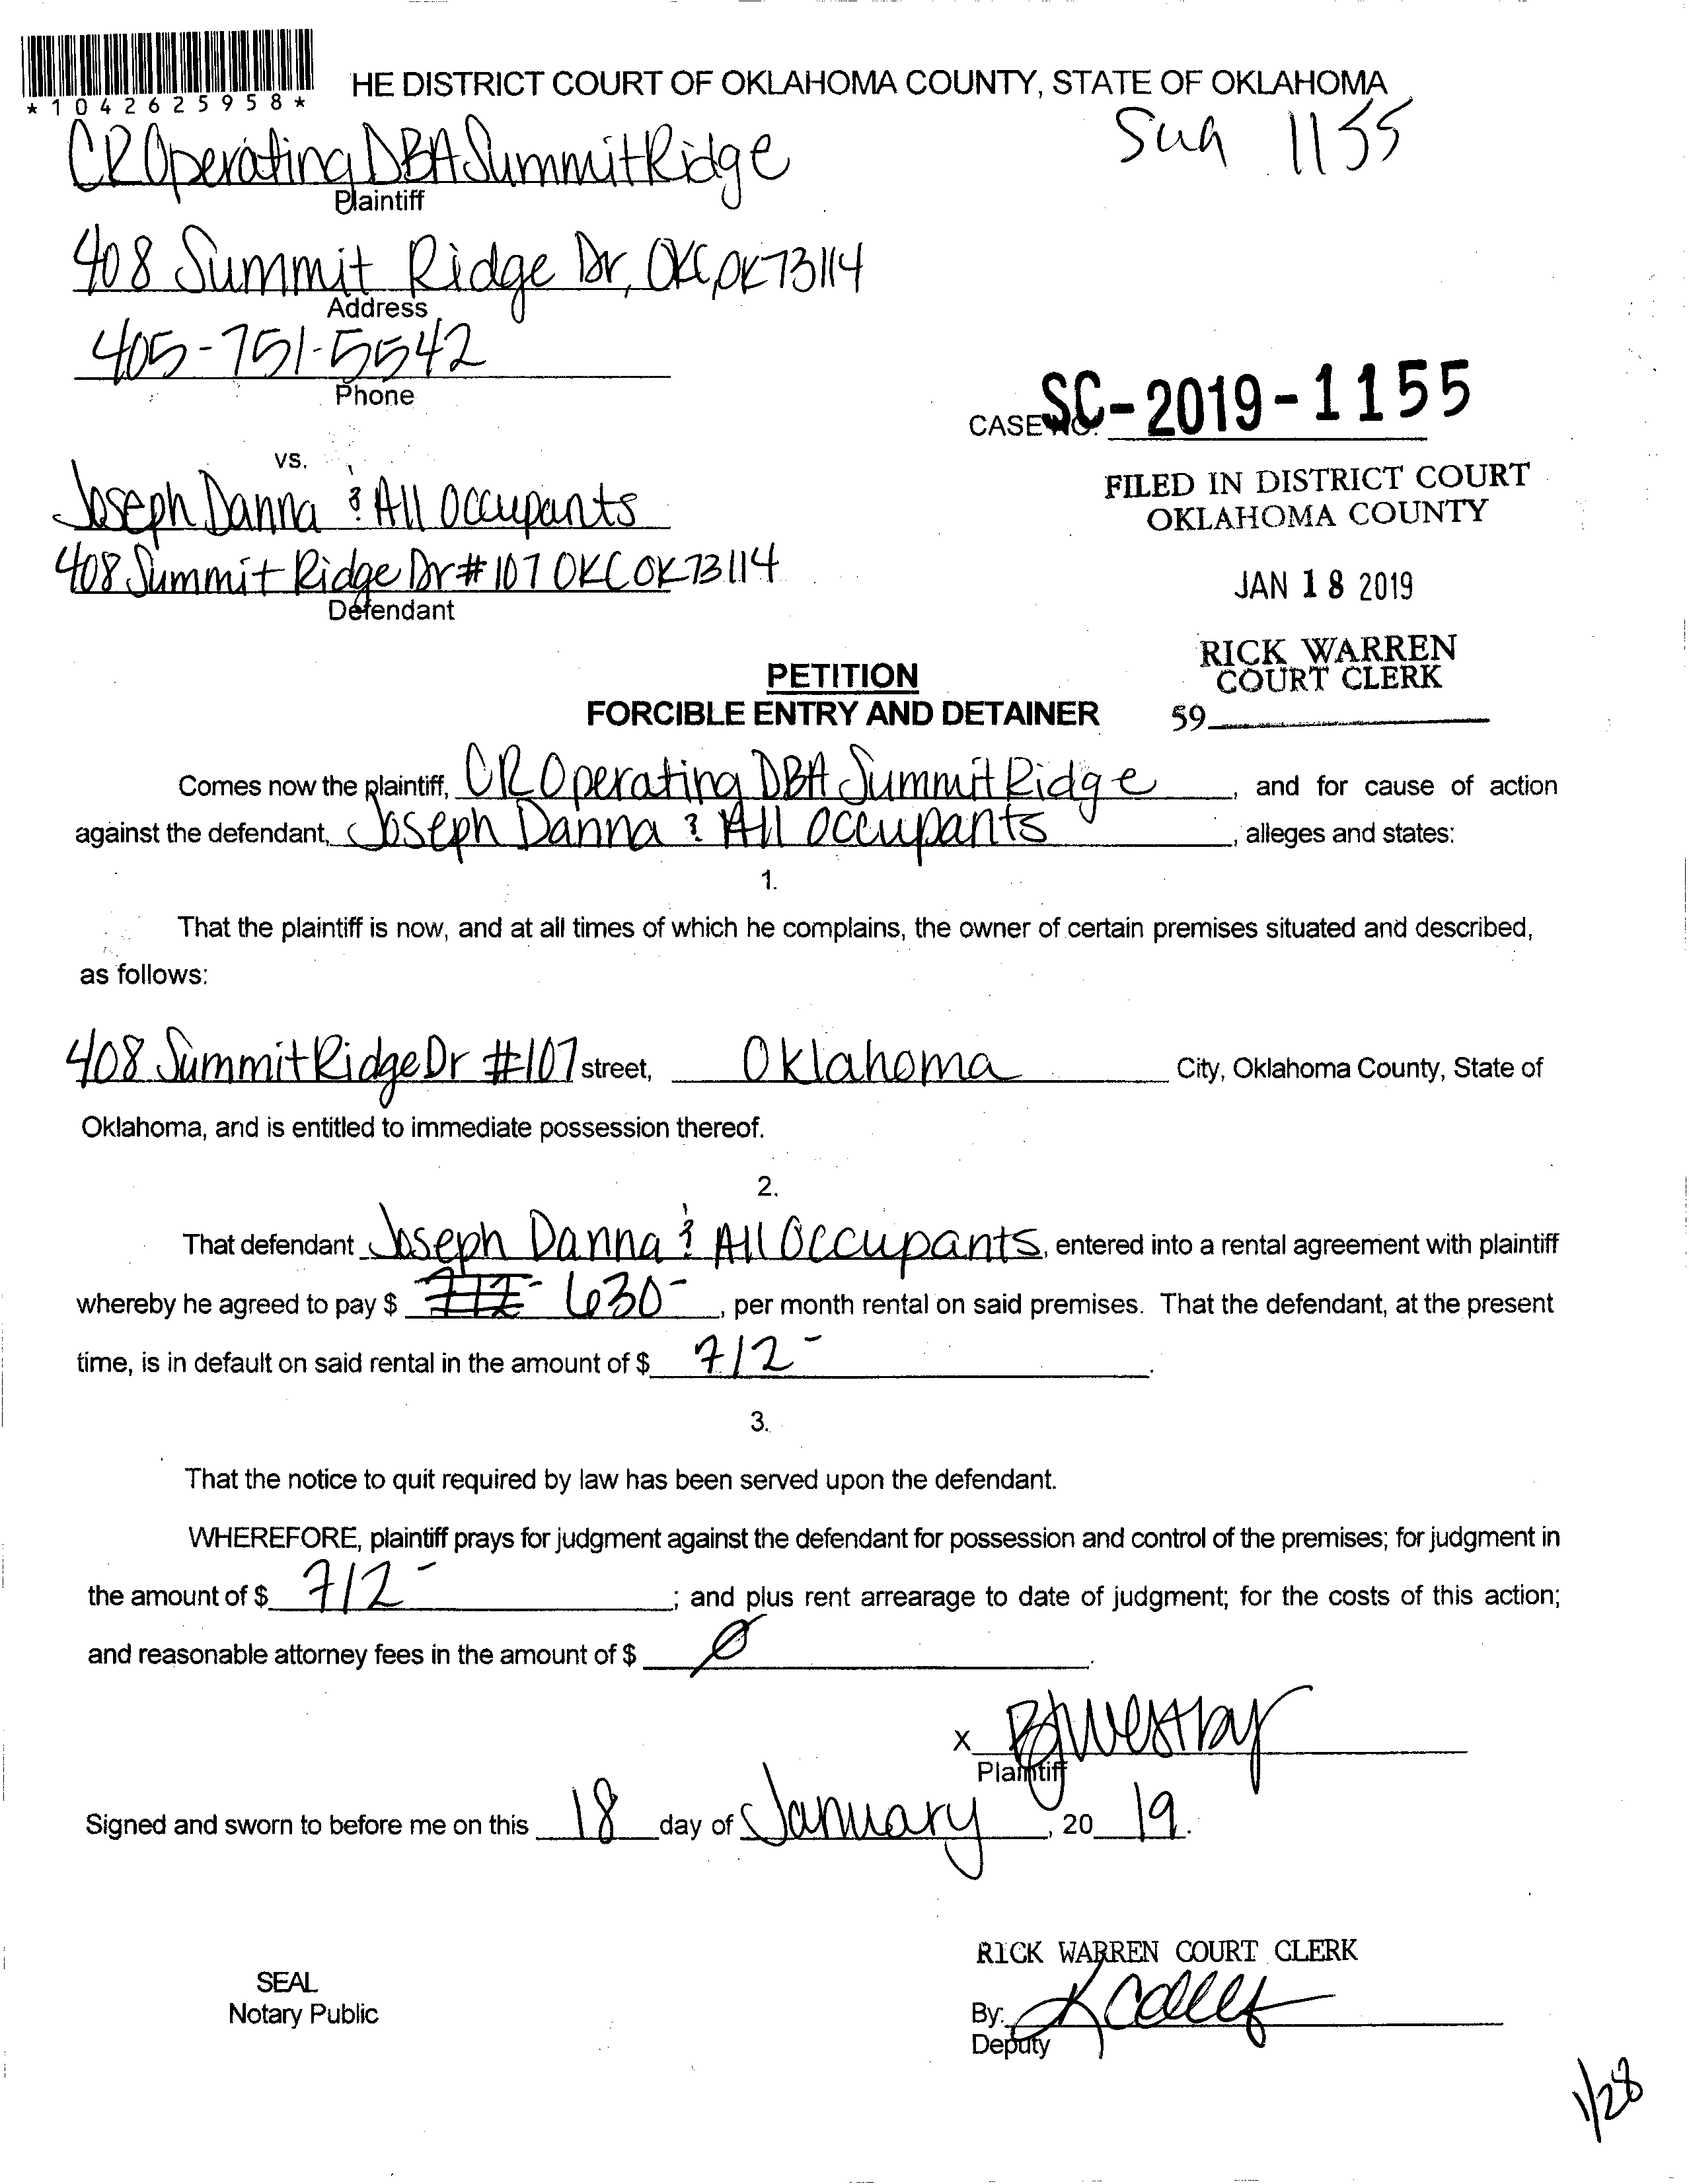 *1042625958*
HE DISTRICT COURT OF OKLAHOMA COUNTY, STATE OF OKLAHOMA
1155
CR Operating DBA Summit Ridge
Plaintiff
408 Summit Ridge Dr, OKC, OK 73114
Address
405-751-5542
Phone
CASE NO. SC-2019-1155
vs.
Joseph Danna & All Occupants
408 Summit Ridge Dr #107 OKC OK 73114
Defendant
FILED IN DISTRICT COURT
OKLAHOMA COUNTY
JAN 18 2019
RICK WARREN
COURT CLERK
59
PETITION
FORCIBLE ENTRY AND DETAINER
Comes now the plaintiff, CR Operating DBA Summit Ridge, and for cause of action
against the defendant, Joseph Danna & All Occupants, alleges and states:
1.
That the plaintiff is now, and at all times of which he complains, the owner of certain premises situated and described,
as follows:
408 Summit Ridge Dr #107 street, Oklahoma City, Oklahoma County, State of
Oklahoma, and is entitled to immediate possession thereof.
2.
That defendant Joseph Danna & All Occupants, entered into a rental agreement with plaintiff
whereby he agreed to pay $ 630-, per month rental on said premises. That the defendant, at the present
time, is in default on said rental in the amount of $ 712-.
3.
That the notice to quit required by law has been served upon the defendant.
WHEREFORE, plaintiff prays for judgment against the defendant for possession and control of the premises; for judgment in
the amount of $ 712-; and plus rent arrearage to date of judgment; for the costs of this action;
and reasonable attorney fees in the amount of $ Ø.
X
Plaintiff
Signed and sworn to before me on this 18 day of January, 20 19.
RICK WARREN COURT CLERK
SEAL
Notary Public
By:
Deputy
1/28